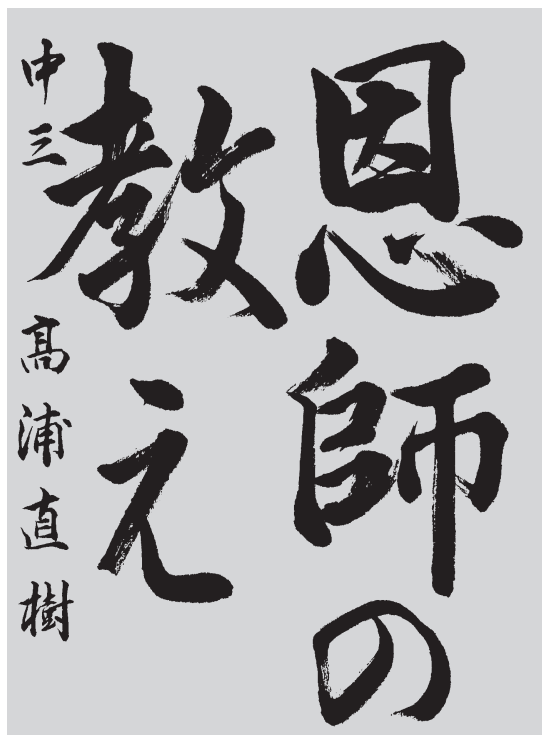 恩師の
教え
中三 髙浦直樹